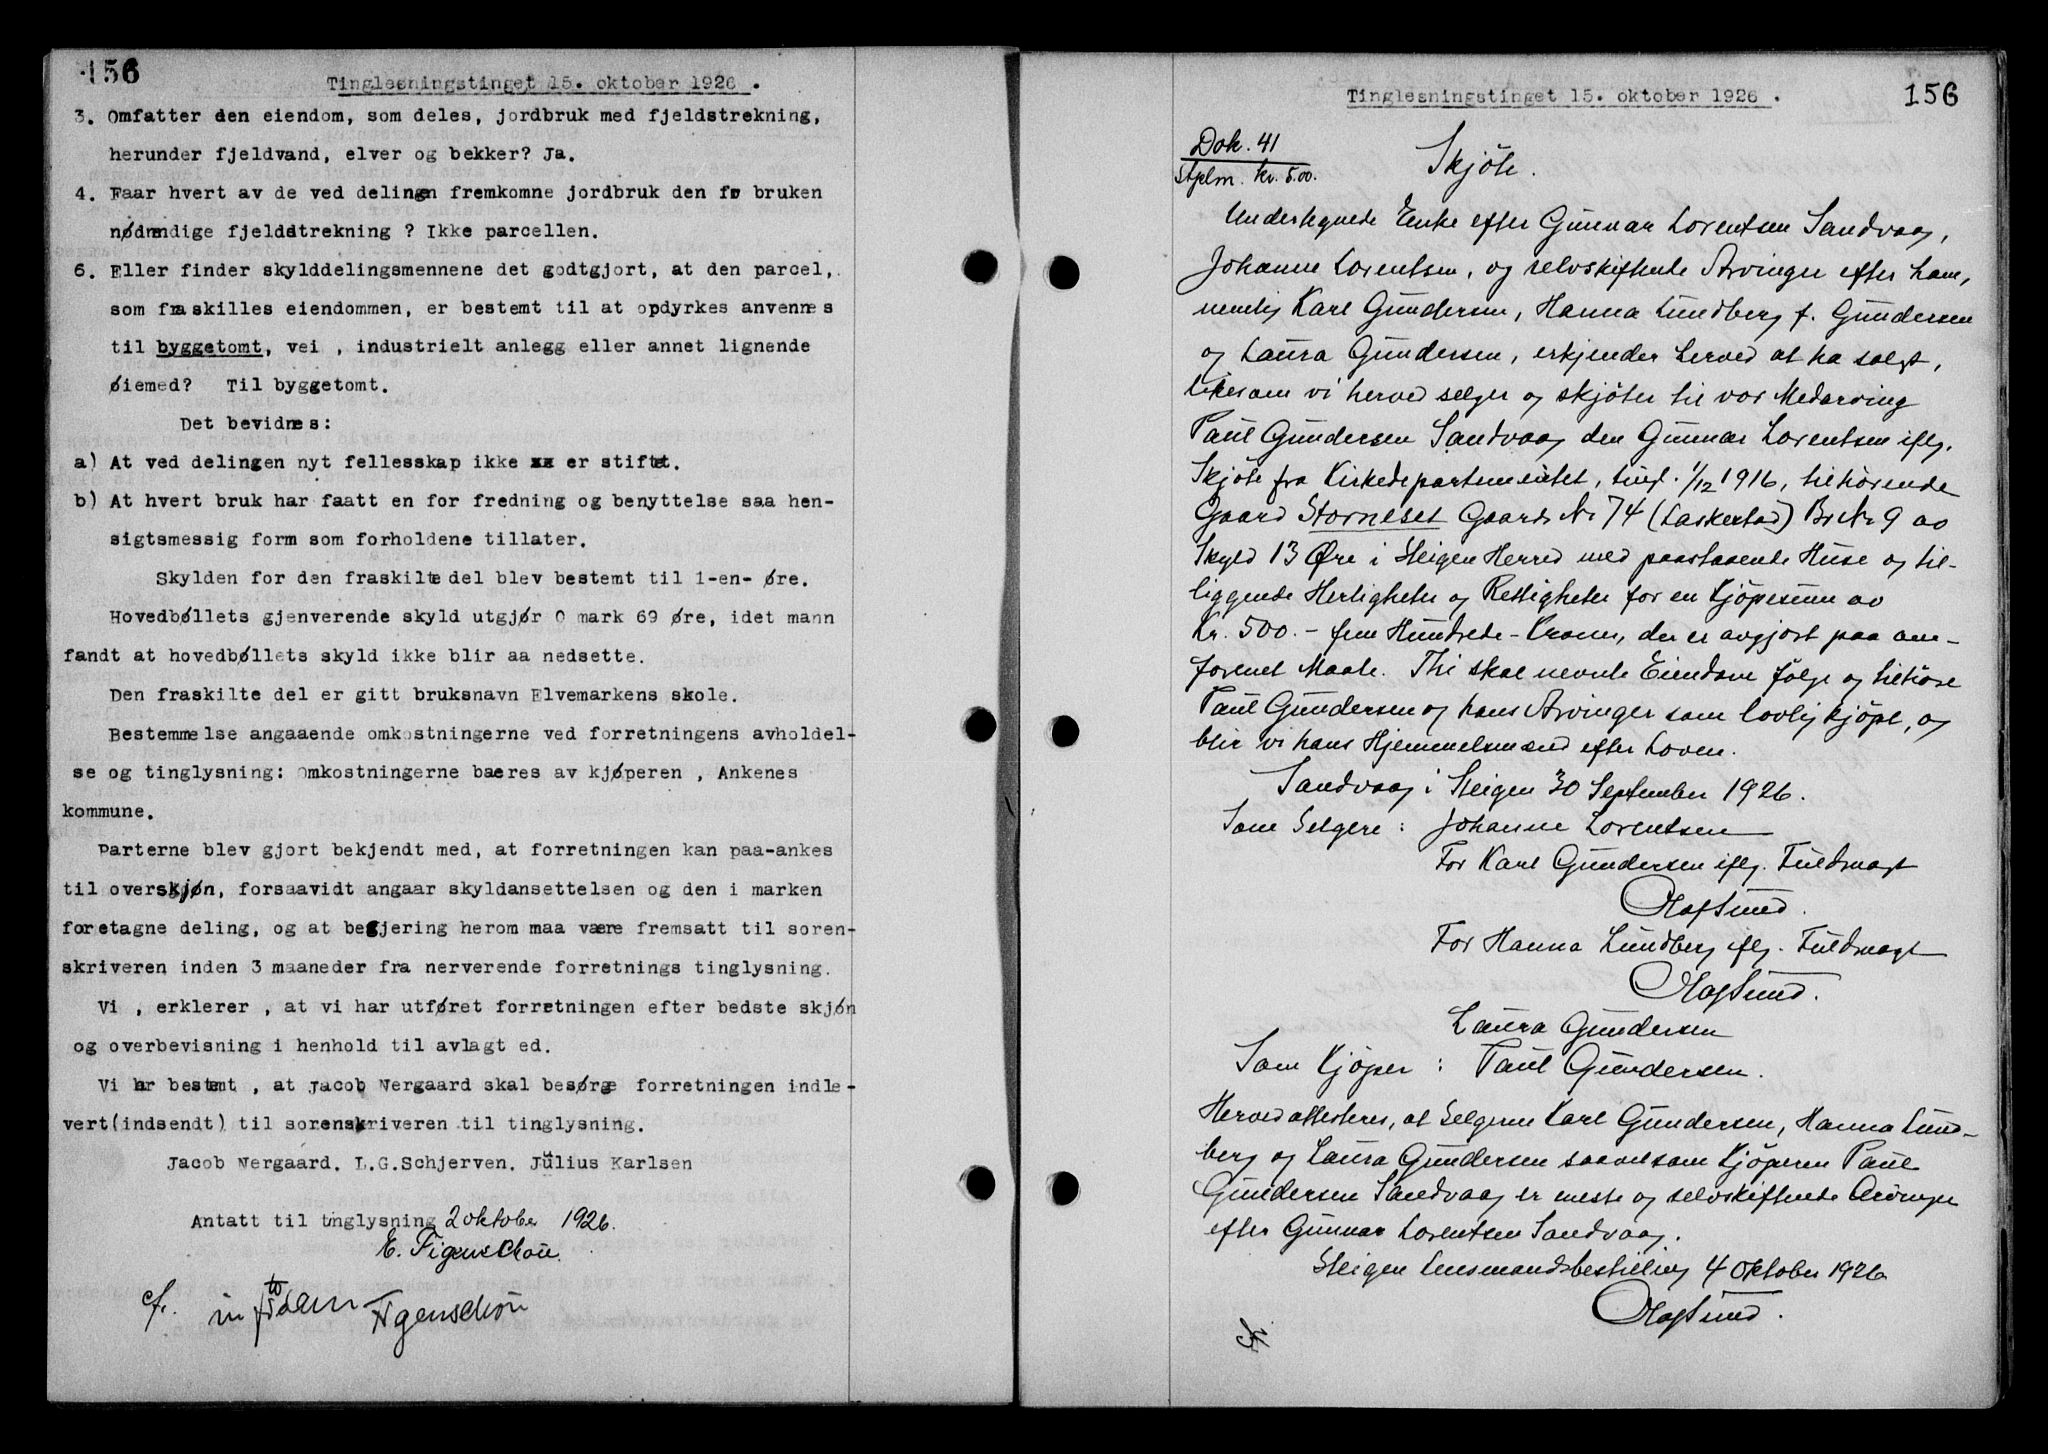 156
Tinglesningstinget 15. oktober 1926 .
3. Omfatter den eiendom, som deles, jordbruk med fjeldstrekning,
herunder fjeldvand, elver og bekker? Ja.
4. Faar hvert av de ved delingen fremkomne jordbruk den for bruken
nødvendige fjeldstrekning ? Ikke parcellen.
6. Eller finder skylddelingsmennene det godtgjort, at den parcel,
som fraskilles eiendommen, er bestemt til at opdyrkes anvennes
til byggetomt, vei , industrielt anlegg eller annet lignende
øiemed? Til byggetomt.
Det bevidnes:
a) At ved delingen nyt fellesskap ikke xx er stiftet.
b) At hvert bruk har faatt en for fredning og benyttelse saa hen-
sigtsmessig form som forholdene tillater.
Skylden for den fraskilte del blev bestemt til 1-en- øre.
Hovedbøllets gjenverende skyld utgjør 0 mark 69 øre, idet mann
fandt at hovedbøllets skyld ikke blir aa nedsette.
Den fraskilte del er gitt bruksnavn Elvemarkens skole.
Bestemmelse angaaende omkostningerne ved forretningens avholdel-
se og tinglysning: Omkostningerne bæres av kjøperen , Ankenes
kommune.
Parterne blev gjort bekjendt med, at forretningen kan paa-ankes
til overskjøn, forsaavidt angaar skyldansettelsen og den i marken
foretagne deling, og at begjering herom maa være fremsatt til soren-
skriveren inden 3 maaneder fra nerverende forretnings tinglysning.
Vi , erklerer , at vi har utføret forretningen efter bedste skjøn
og overbevisning i henhold til avlagt ed.
Vi har bestemt , at Jacob Nergaard skal besørge forretningen indle-
vert(indsendt) til sorenskriveren til tinglysning.
Jacob Nergaard. L.G.Schjerven. Jülius Karlsen
Antatt til tinglysning 2 oktober 1926.
E. Figenschou.
cfr.
Figenschou
Tinglesningstinget 15. oktober 1926 .
156
Dok. 41
Stplm. kr. 5.00.
Skjöte.
Undertegnede Enke efter Gunnar Lorentsen Sandvaag,
Johanne Lorentsen, og selvskiftende Arvinger efter ham,
nemlig Karl Gundersen, Hanna Lundberg f. Gundersen
og Laura Gundersen, erkjender herved at ha solgt,
likesom vi herved selger og skjöter til vor Medarving
Paul Gundersen Sandvaag den Gunnar Lorentsen iflg.
Skjöte fra Kirkedepartementet, tingl. 1/12 1916, tilhörende
Gaard Storneset Gaards Nr 74 (Laskestad) Br Nr 9 av
Skyld 13 Öre i Steigen Herred med paastaaende Huse og til-
liggende Herligheter og Rettigheter for en Kjöpesum av
Kr. 500.- fem Hundrede - Kroner, der er avgjort paa om-
forenet Maate. Thi skal nevnte Eiendom fölge og tilhöre
Paul Gundersen og hans Arvinger som lovlig kjöpt, og
blir vi hans Hjemmelsmænd efter Loven.
Sandvaag i Steigen 30 September 1926.
Som Selgere : Johanne Lorentsen
For Karl Gundersen iflg. Fuldmagt
Olaf Sund.
For Hanna Lundberg iflg. Fuldmagt
Olaf Sund.
Laura Gundersen
Som Kjöper : Paul Gundersen.
Herved attesteres, at Selgerne Karl Gundersen, Hanna Lund-
berg og Laura Gundersen saavelsom Kjöperen Paul
Gundersen Sandvaag er neste og selvskiftende Arvinger
efter Gunnar Lorentsen Sandvaag.
Steigen Lensmandsbestilling 4 Oktober 1926
Olaf Sund.